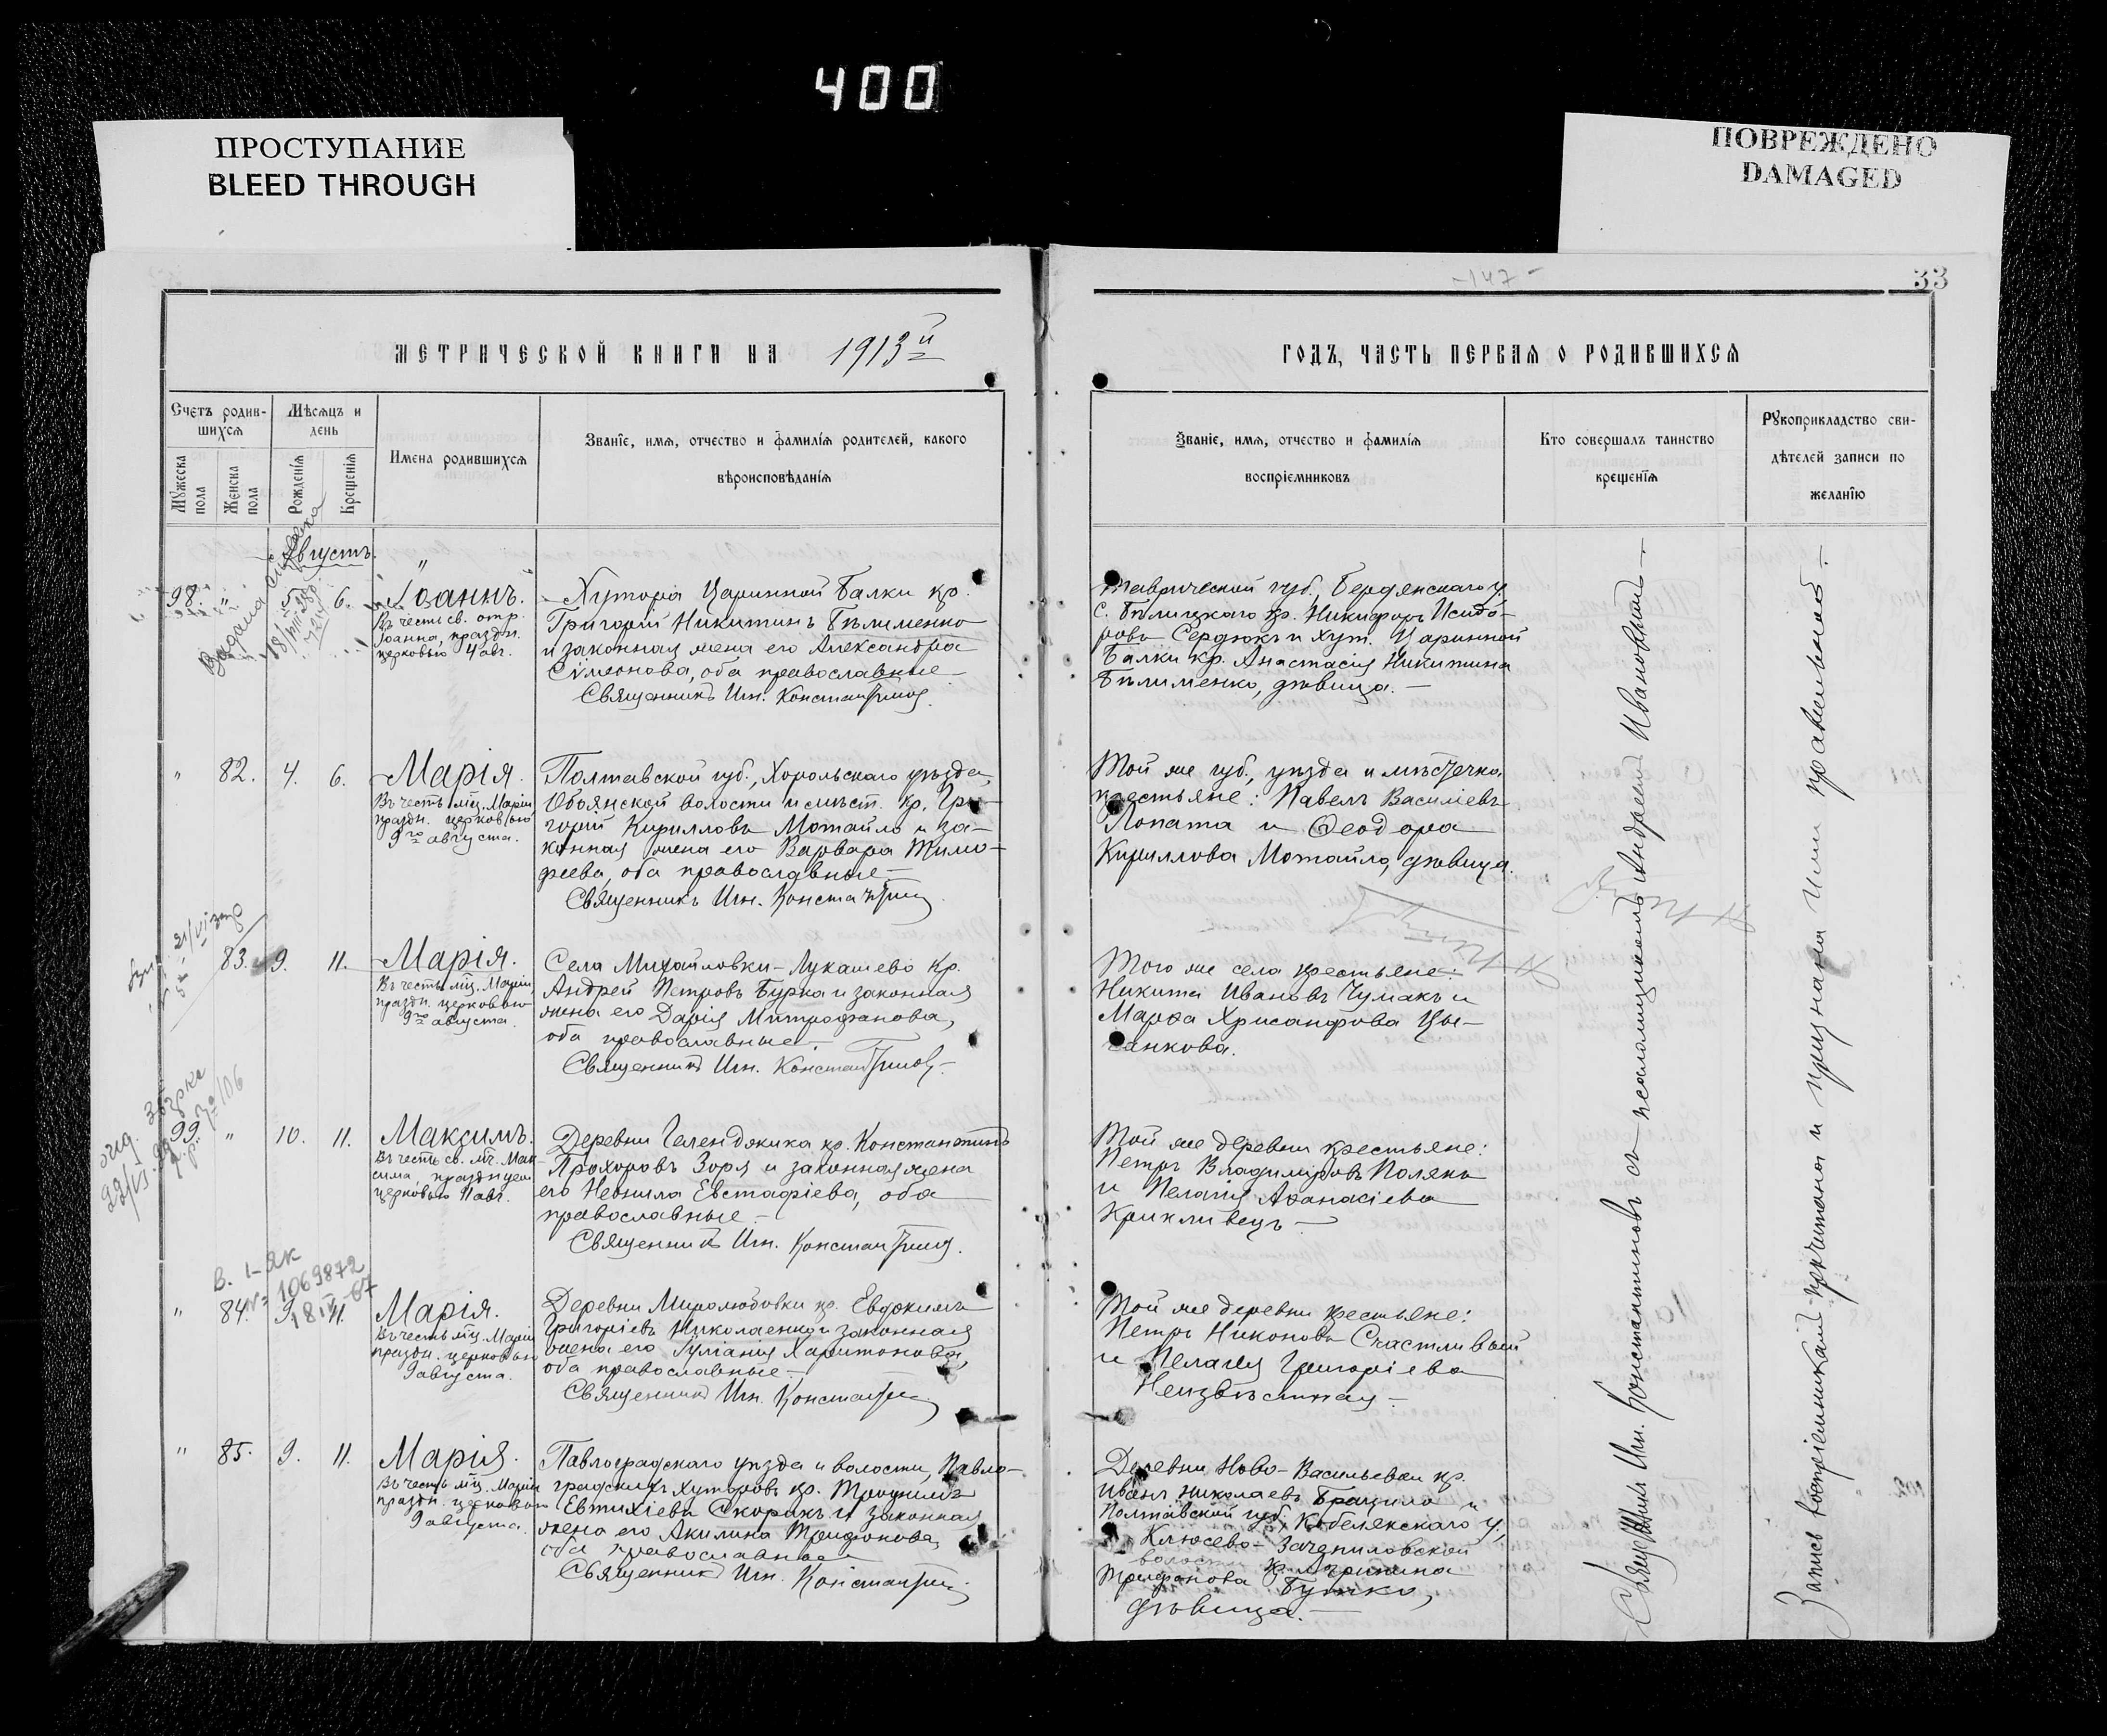 400
ПРОСТУПАНИЕ
BLEED THROUGH
ПОВРЕЖДЕНО
DAMAGED
-147-
33
МЕТРИЧЕСКОЙ КНИГИ НА 1913й
ГОДЪ, ЧАСТЬ ПЕРВАЯ О РОДИВШИХСЯ
Счетъ родив-
шихся
Мужеска
пола
Женска
пола
Мѣсяцъ и
день
Рожденія
Крещенія
Имена родившихся
Званіе, имя, отчество и фамилія родителей, какого
вѣроисповѣданія
Званіе, имя, отчество и фамилія
воспріемниковъ
Кто совершалъ таинство
крещенія
Рукоприкладство сви-
дѣтелей записи по
желанію
Августъ.
98. " 5. 6.
Іоаннъ.
Въ честь св. отр.
Іоанна, праздн.
церковью 4 авг.
Хутора Царинной Балки кр.
Григорій Никитинъ Бѣлименко
и законная жена его Александра
Сѵмеонова, оба православные
Священникъ Игн. Константинов.
Таврической губ., Бердянскаго у.
с. Бѣлицкаго кр. Никифоръ Исидо-
ровъ Сердюкъ и хут. Царинной
Балки кр. Анастасія Никитина
Бѣлименко, дѣвица. —
" 82. 4. 6.
Марія.
Въ честь мц. Маріи
праздн. церковью
9го августа.
Полтавской губ., Хорольскаго уѣзда,
Обоянской волости и мѣст. кр. Гри-
горій Кирилловъ Мотайло и за-
конная жена его Варвара Тимо-
феева, оба православные —
Священникъ Игн. Константинов
Той же губ., уѣзда и мѣстечка
крестьяне: Павелъ Василіевъ
Лопата и Ѳеодора
Кириллова Мотайло, дѣвица.
83. 9. 11.
Марія.
Въ честь мц. Маріи,
праздн. церковью
9го августа.
Села Михайловки-Лукашево кр.
Андрей Петровъ Бурка и законная
жена его Дарія Митрофанова,
оба православные —
Священникъ Игн. Константинов.
Того же села крестьяне:
Никита Ивановъ Чумакъ и
Марѳа Хрисанфова Цы-
ганкова.
99. " 10. 11.
Максимъ.
Въ честь св. мч. Мак-
сима, празднуем.
церковью 11 авг.
Деревни Геленджика кр. Константинъ
Прохоровъ Зоря и законная жена
его Неонила Евстафіева, оба
православные —
Священникъ Игн. Константинов.
Той же деревни крестьяне:
Петръ Владиміровъ Полякъ
и Пелагія Аѳанасіева
Крикливецъ —
В. 1-ЯК
№ 1069872
" 84. 9. 11.
Марія.
Въ честь мц. Маріи
праздн. церковью
9 августа.
Деревни Миролюбовки кр. Евдокимъ
Григоріевъ Николаенко и законная
жена его Гуманія Харитонова,
оба православные —
Священникъ Игн. Константинов
Той же деревни крестьяне:
Петръ Никоновъ Счастливый
и Пелагія Григоріева
Неизвѣстная —
" 85. 9. 11.
Марія.
Въ честь мц. Маріи
праздн. церковью
9 августа.
Павлоградскаго уѣзда и волости, Павло-
градскихъ хуторовъ кр. Трофимъ
Евтихіевъ Скорикъ и законная
жена его Акилина Трифонова,
оба православные
Священникъ Игн. Константинов.
Деревни Ново-Васильевки кр.
Иванъ Николаевъ Брацило и
Полтавской губ. Кобелякскаго у.,
Клюсево-Зачепиловской
волости кр.
Трифонова Бутко,
дѣвица. —
Священникъ Игн. Константиновъ съ псаломщикомъ Андреемъ Ивановымъ —
Запись воспріемниками прочитана и признана ими правильной. —